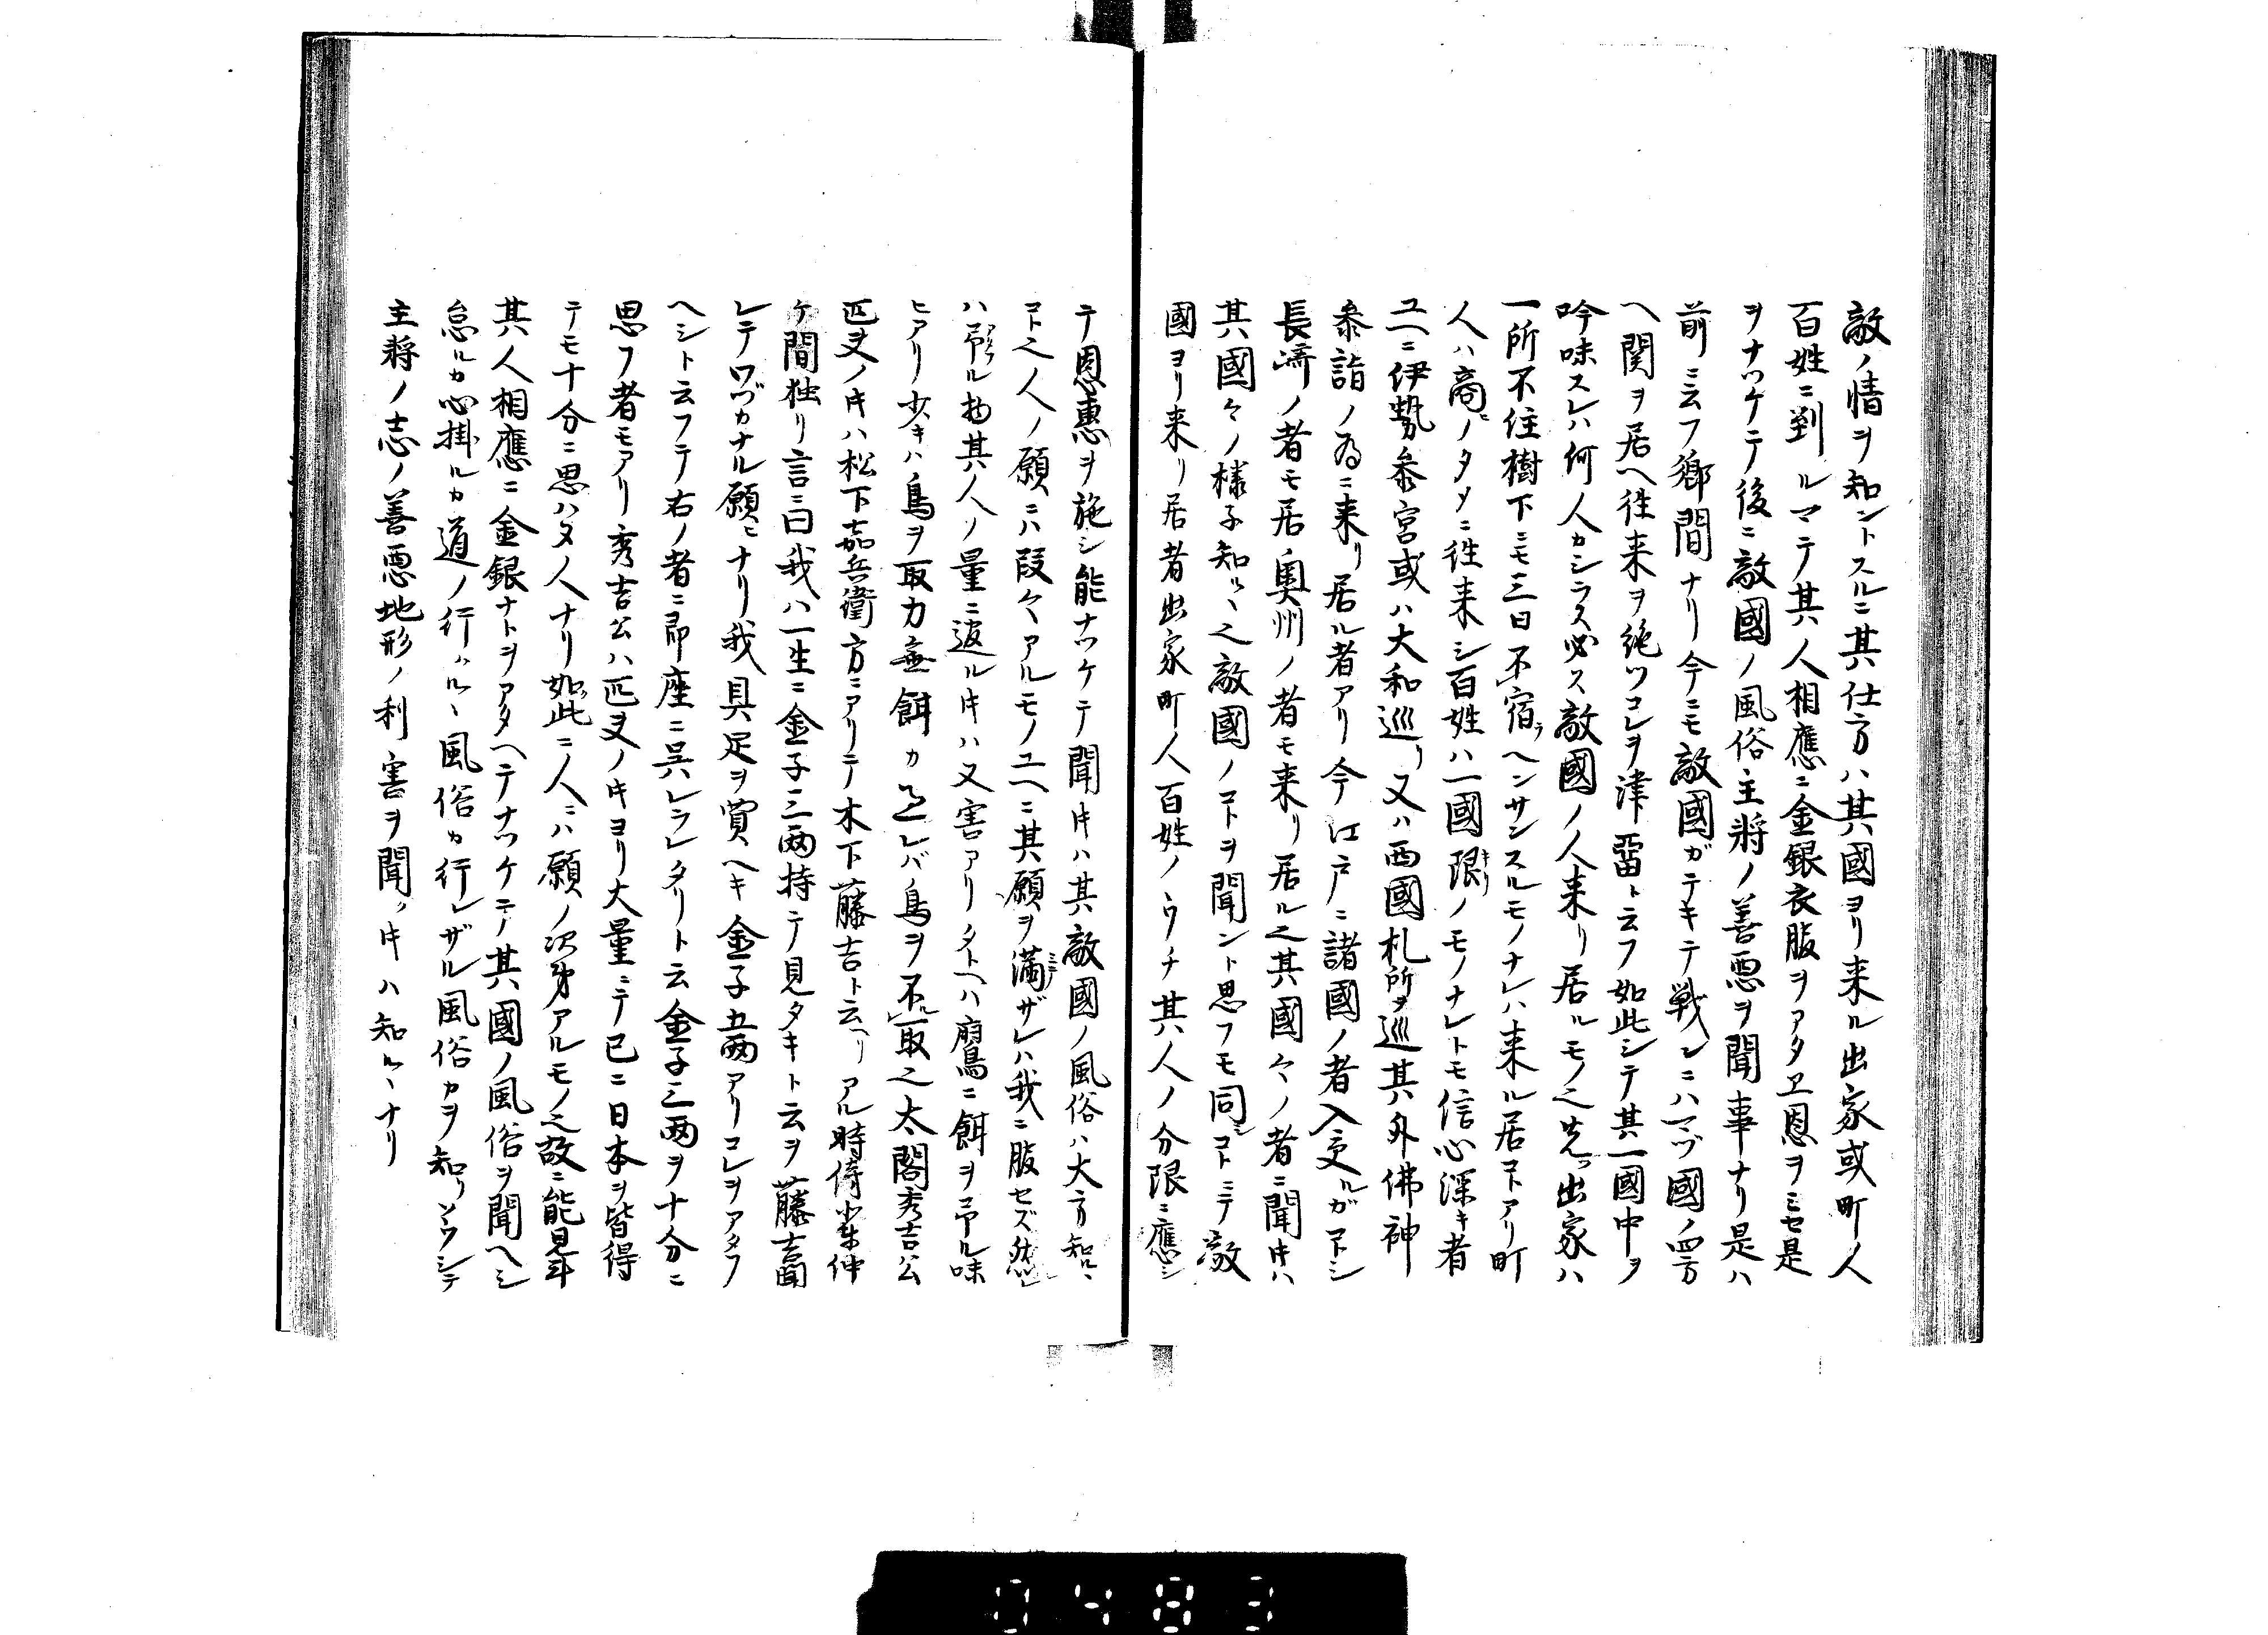 敵ノ情ヲ知ントスルニ其仕方ハ其國ヨリ来ル出家或町人
百姓ニ到ルマテ其人相應ニ金銀衣服ヲアタヱ恩ヲミセ是
ヲナツケテ後ニ敵國ノ風俗主將ノ善悪ヲ聞事ナリ是ハ
前ニ云フ郷間ナリ今ニモ敵國ガテキテ戦ンニハマヅ國ノ四方
ヘ関ヲ居ヘ往来ヲ絶ツコレヲ津留ト云フ如此シテ其一國中ヲ
吟味スレハ何人カシラス必ス敵國ノ人来リ居ルモノ也先ツ出家ハ
一所不住樹下ニモ三日不宿ラヘンサンスルモノナレハ来ル居コトアリ町
人ハ商ヒノタメニ往来シ百姓ハ一國限キリノモノナレトモ信心深キ者
ユヘニ伊勢参宮或ハ大和巡リ又ハ西國札所ヲ巡其外佛神
参詣ノ為ニ来リ居ル者アリ今江戸ニ諸國ノ者入変ルガコトシ
長崎ノ者モ居奥州ノ者モ来リ居ル也其國々ノ者ニ聞キハ
其國々ノ様子知ルヽ也敵國ノコトヲ聞ント思フモ同シコトニテ敵
國ヨリ来リ居者出家町人百姓ノウチ其人ノ分限ニ應シ
テ恩惠ヲ施シ能ナツケテ聞キハ其敵國ノ風俗ハ大方知ルヽ
コト也人ノ願ニハ段々アルモノユヘニ其願ヲ満ザレハ我ニ服セズ然レ
ハ予ル物其人ノ量ニ過ルキハ又害アリタトヘハ鷹ニ餌ヲ予ル味
ヒアリ少キハ鳥ヲ取力無餌カ過レバ鳥ヲ不取也太閤秀吉公
匹夫ノキハ松下嘉兵衛方ニアリテ木下藤吉ト云ヘリアル時侍輩仲
ケ間独リ言ニ曰我ハ一生ニ金子三両持テ見タキト云ヲ藤吉聞
レテワヅカナル願ヒナリ我具足ヲ買ヘキ金子五両アリコレヲアタフ
ヘシト云フテ右ノ者ニ即座ニ呉レラレタリト云金子三両ヲ十分ニ
思フ者モアリ秀吉公ハ匹夫ノキヨリ大量ニテ已ニ日本ヲ皆得
テモ十分ニ思ハヌ人ナリ如此ニ人ニハ願ノ次第アルモノ也故ニ能見斗
其人相應ニ金銀ナトヲアタヘテナツケテ其國ノ風俗ヲ聞ヘシ
怠ルカ心掛ルカ道ノ行ルヽ風俗カ行レザル風俗カヲ知リソウシテ
主將ノ志ノ善悪地形ノ利害ヲ聞クキハ知ルヽナリ
0483